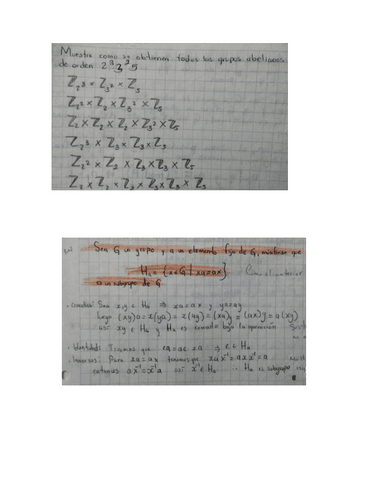 Muestra como se obtienen todos los grupos abelianos
de orden 2³3²5
Z₂³ × Z₃² × Z₅
Z₂² × Z₂ × Z₃² × Z₅
Z₂ × Z₂ × Z₂ × Z₃² × Z₅
Z₂³ × Z₃ × Z₃ × Z₅
Z₂² × Z₂ × Z₃ × Z₃ × Z₅
Sea G un grupo y a un elemento fijo de G, que
Hₐ = {x∈G | xa=ax} Como el anterior
es un subgrupo de G
Sean x,y ∈ Hₐ ⇒ xa=ax y ya=ay
luego (xy)a = x(ya) = x(ay) = (xa)y = (ax)y = a(xy)
así xy ∈ Hₐ y Hₐ es cerrado bajo la operación
· Identidad: Tenemos que ea=ae=a ⇒ e∈Hₐ
· Inversos: Para xa=ax tenemos que xax⁻¹=axx⁻¹=a
entonces ax⁻¹=x⁻¹a así x⁻¹∈Hₐ · Hₐ es subgrupo